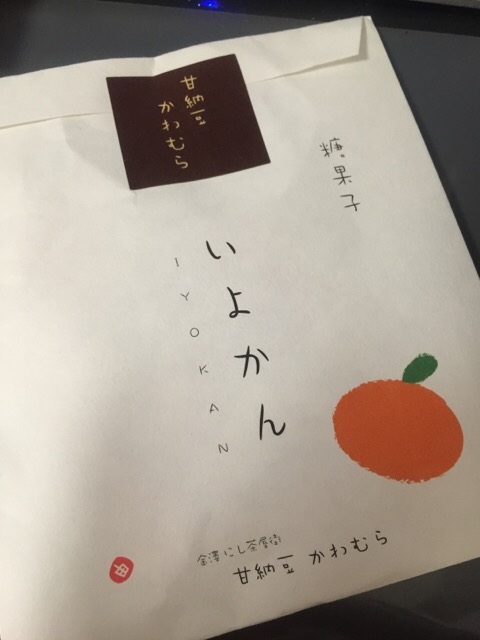 甘納豆
かわむら
糖菓子
いよかん
IYOKAN
金澤にし茶屋街
甘納豆 かわむら